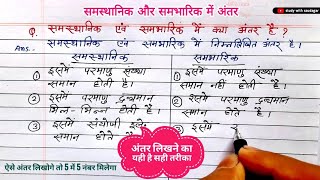 समस्थानिक और समभारिक में अंतर
study with saurabger
Q. समस्थानिक एवं समभारिक में क्या अंतर है ?
Ans. समस्थानिक एवं समभारिक में निम्नलिखित अंतर है।
समस्थानिक
① इसमें परमाणु संख्या
समान होती है।
② इसमें परमाणु द्रव्यमान
भिन्न-भिन्न होती है।
③ इसमें संयोजी इले
समान होते है
समभारिक
① इसमें परमाणु संख्या
समान नहीं होती है।
② इसमें परमाणु द्रव्यमान
समान होते है।
③ इसमें
अंतर लिखने का
यही है सही तरीका
ऐसे अंतर लिखोगे तो 5 में 5 नंबर मिलेगा